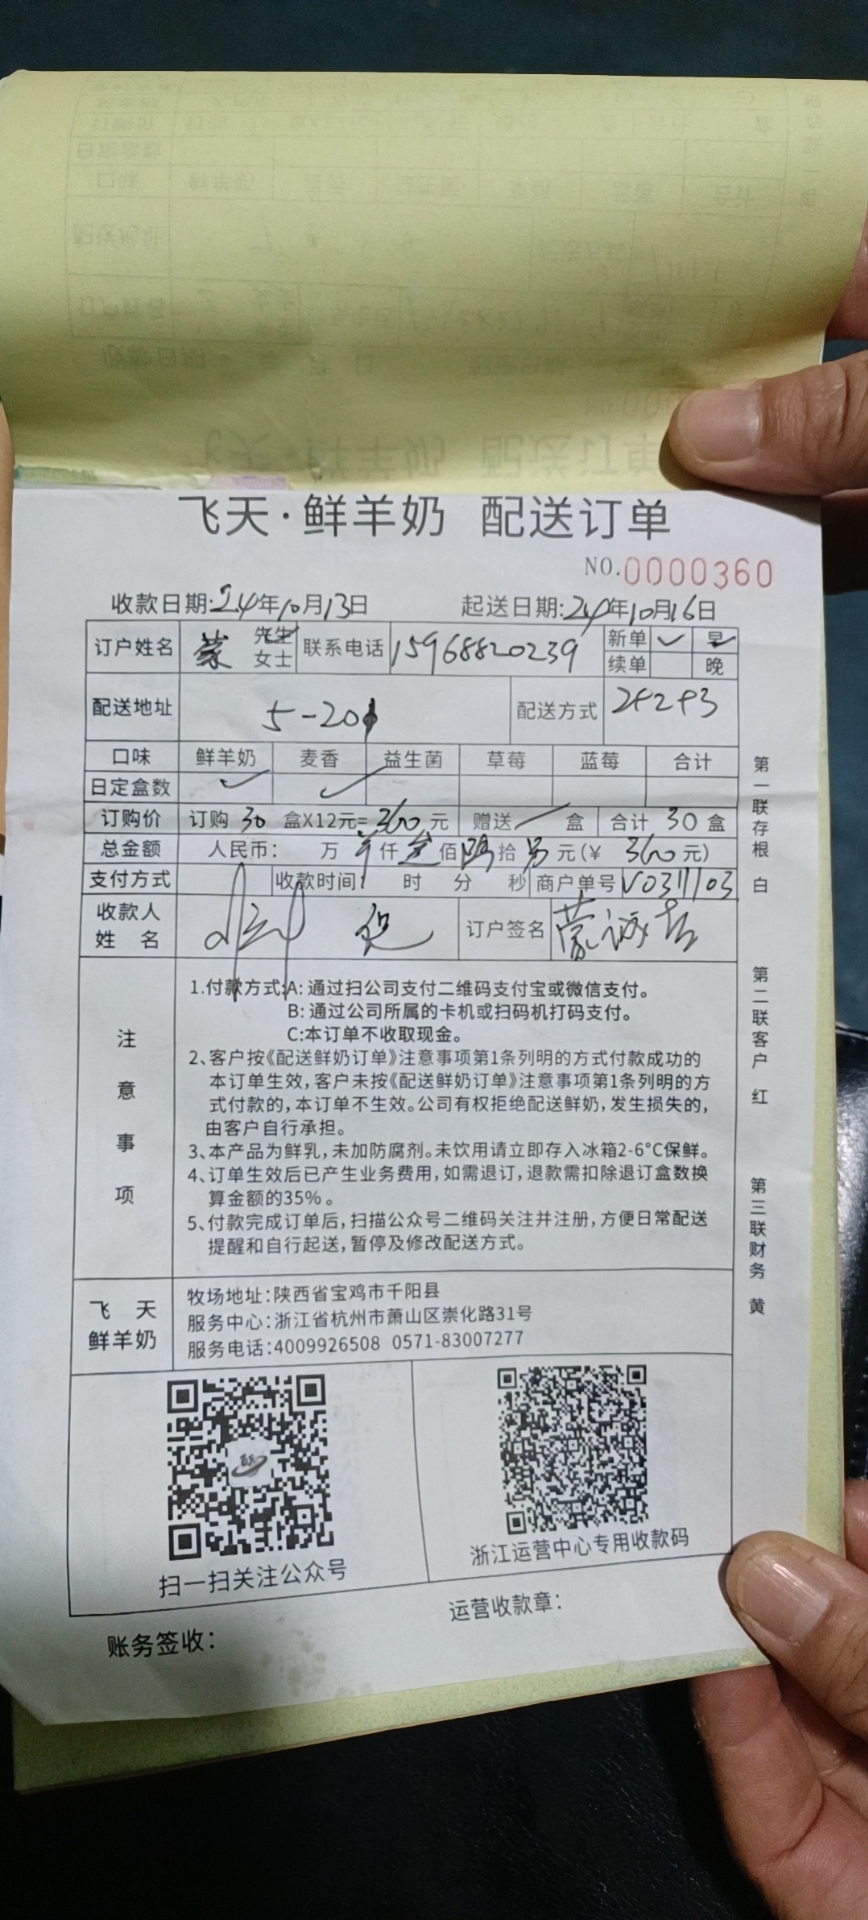 飞天·鲜羊奶 配送订单
NO.0000360
收款日期:24年10月13日 起送日期:24年10月16日
订户姓名 蒙 先生 女士 联系电话 15968820239 新单 ✓ 早 ✓
续单 晚
配送地址 5-201 配送方式 2+2+3
口味 鲜羊奶 麦香 益生菌 草莓 蓝莓 合计
日定盒数 ✓ ✓
订购价 订购 30 盒X12元=360元 赠送 / 盒 合计 30 盒
总金额 人民币: 万 仟 佰 陆拾 元(¥ 360元)
支付方式 收款时间 时 分 秒 商户单号 V0311103
收款人 姓名 订户签名 蒙
注意事项
1.付款方式:A: 通过扫公司支付二维码支付宝或微信支付。
B: 通过公司所属的卡机或扫码机打码支付。
C:本订单不收取现金。
2、客户按《配送鲜奶订单》注意事项第1条列明的方式付款成功的
本订单生效,客户未按《配送鲜奶订单》注意事项第1条列明的方
式付款的,本订单不生效。公司有权拒绝配送鲜奶,发生损失的,
由客户自行承担。
3、本产品为鲜乳,未加防腐剂。未饮用请立即存入冰箱2-6°C保鲜。
4、订单生效后已产生业务费用,如需退订,退款需扣除退订盒数换
算金额的35%。
5、付款完成订单后,扫描公众号二维码关注并注册,方便日常配送
提醒和自行起送,暂停及修改配送方式。
飞天
鲜羊奶
牧场地址:陕西省宝鸡市千阳县
服务中心:浙江省杭州市萧山区崇化路31号
服务电话:4009926508 0571-83007277
扫一扫关注公众号
浙江运营中心专用收款码
账务签收:
运营收款章:
第一联存根 白
第二联客户 红
第三联财务 黄